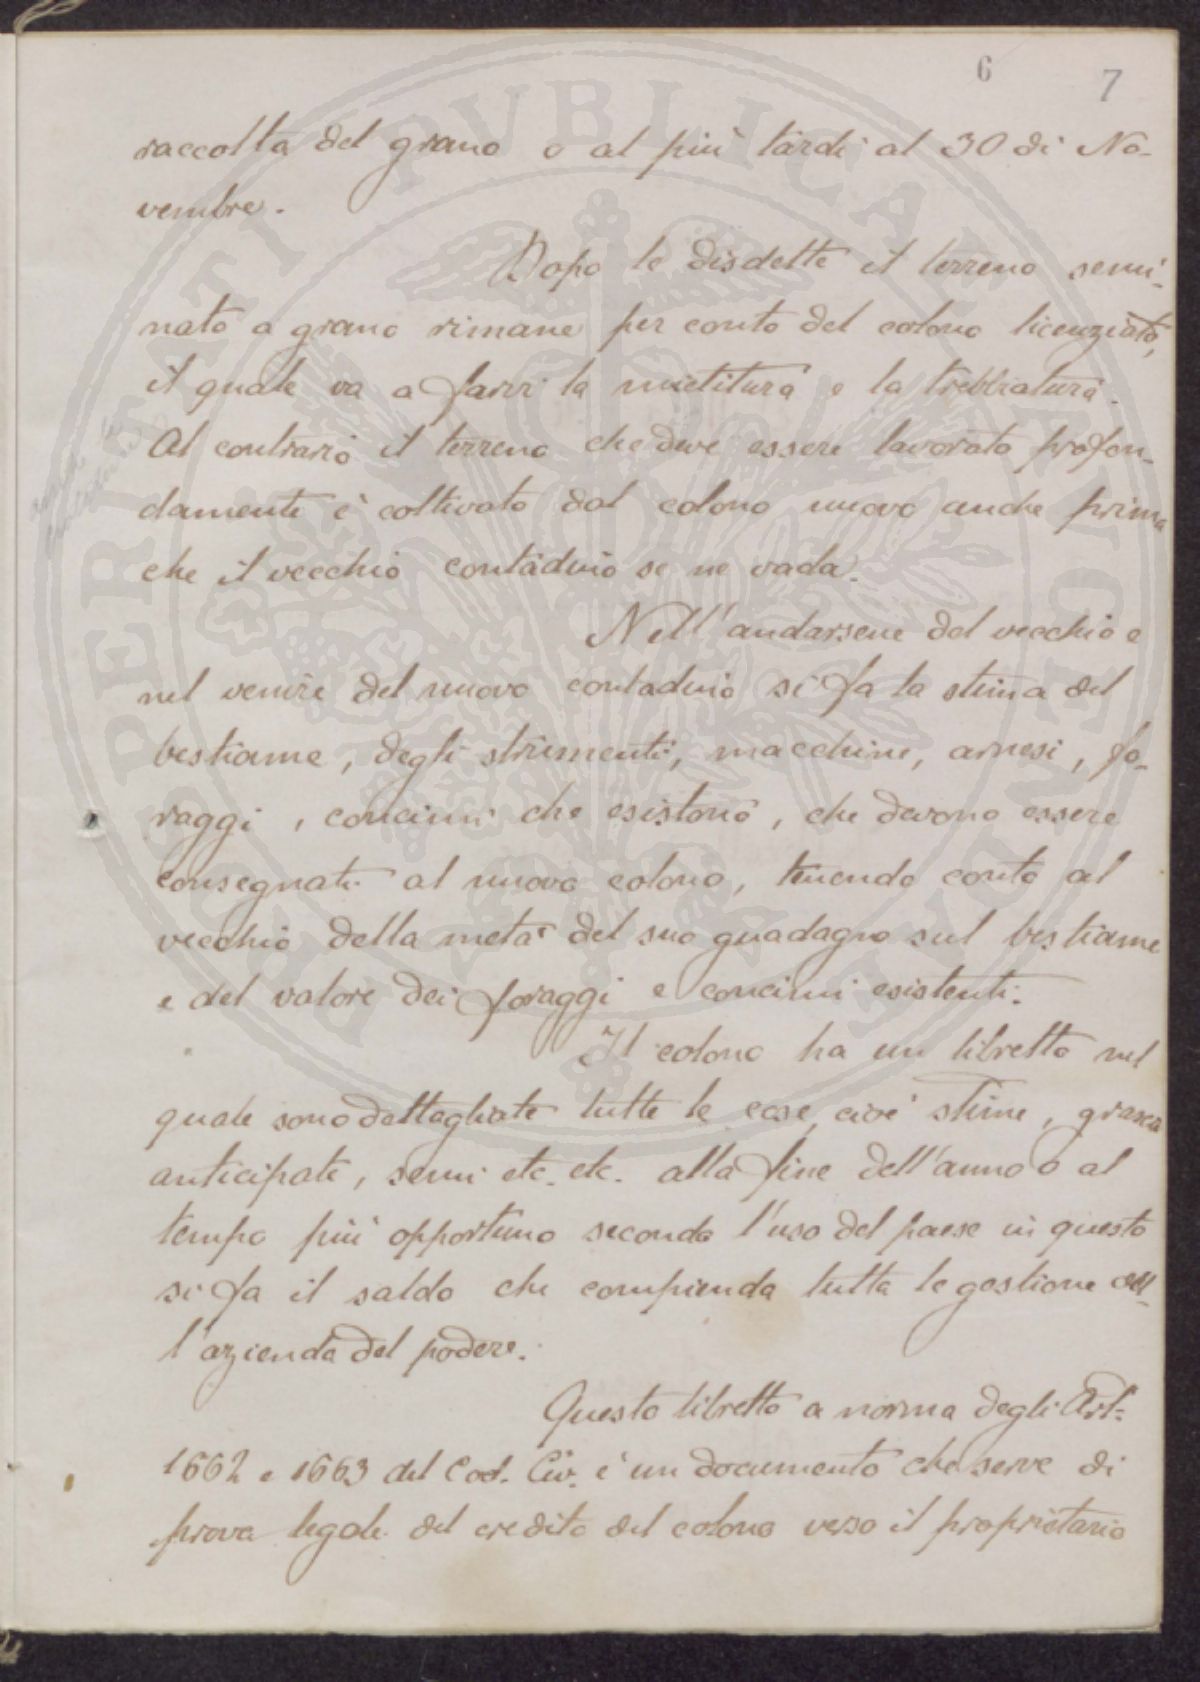 6 7
raccolta del grano o al più tardi al 30 di No-
vembre.
Dopo le disdette il terreno semi-
nato a grano rimane per conto del colono licenziato,
il quale va a farvi la mietitura e la trebbiatura.
Al contrario il terreno che deve essere lavorato profon-
damente è coltivato dal colono nuovo anche prima
che il vecchio contadino se ne vada.
Nell'andarsene del vecchio e
nel venire del nuovo contadino si fa la stima del
bestiame, degli strumenti, macchine, arnesi, fo-
raggi, concimi che esistono, che devono essere
consegnati al nuovo colono, tenendo conto al
vecchio della metà del suo guadagno sul bestiame
e del valore dei foraggi e concimi esistenti.
Il colono ha un libretto nel
quale sono dettagliate tutte le cose, cioè stime, grasce
anticipate, semi etc. etc. alla fine dell'anno o al
tempo più opportuno secondo l'uso del paese in questo
si fa il saldo che compienda tutta la gestione del-
l'azienda del podere.
Questo libretto a norma degli Art.
1662 e 1663 del Cod. Civ. è un documento che serve di
prova legale del credito del colono verso il proprietario
PVBLICAE AVGENDAE PROSPERITATI